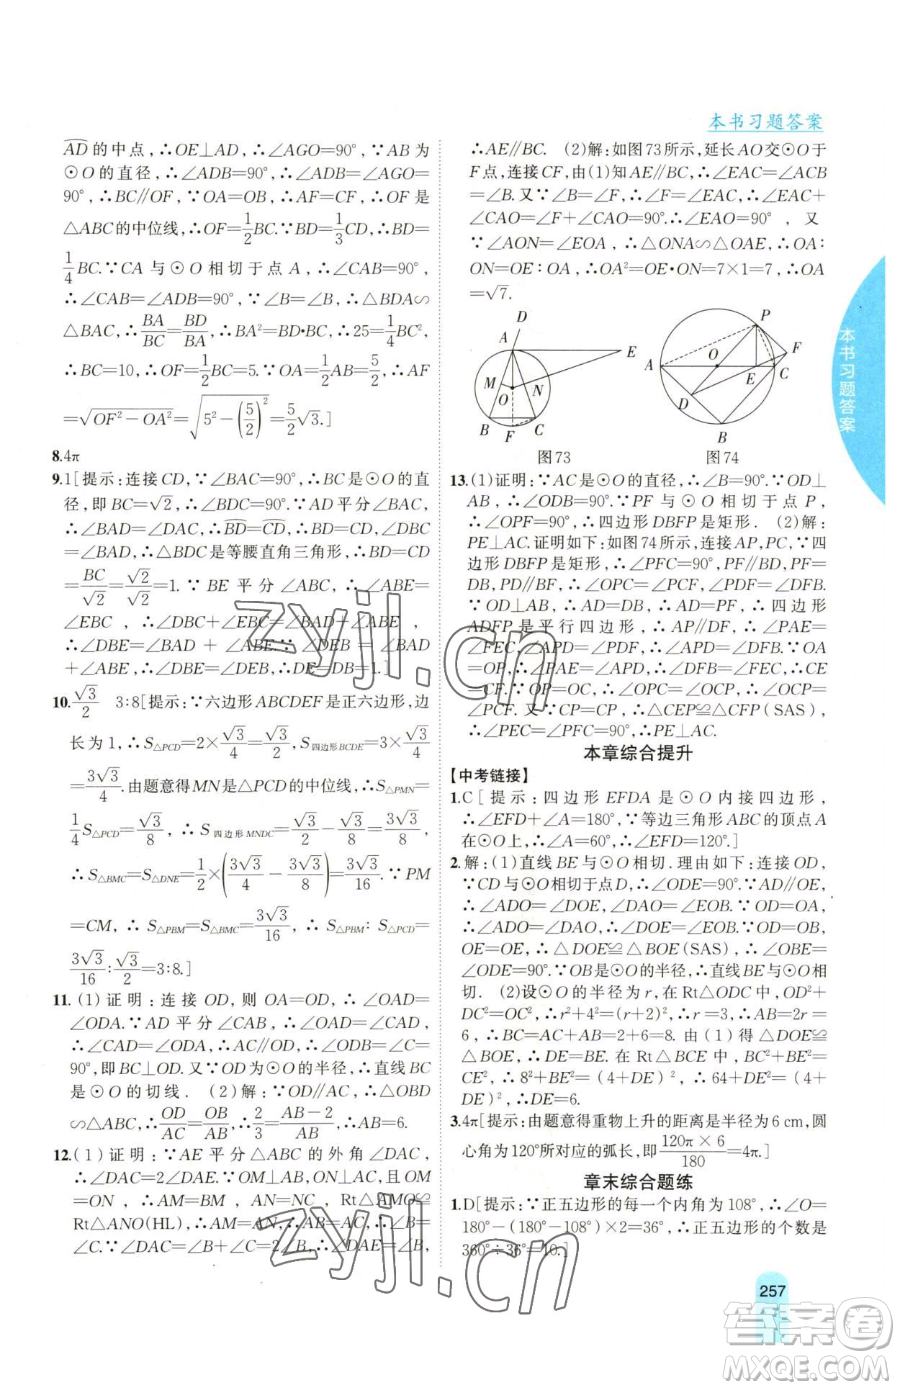 本书习题答案
AD的中点,∴OE⊥AD,∴∠AGO=90°,∵AB为
⊙O的直径,∴∠ADB=90°,∴∠ADB=∠AGO=
90°,∴BC∥OF,∵OA=OB,∴AF=CF,∴OF是
△ABC的中位线,∴OF=1/2BC.∵BD=1/3CD,∴BD=
1/4BC.∵CA与⊙O相切于点A,∴∠CAB=90°,
∴∠CAB=∠ADB=90°,∵∠B=∠B,∴△BDA∽
△BAC,∴BA/BC=BD/BA,∴BA²=BD•BC,∴25=1/4BC²,
∴BC=10,∴OF=1/2BC=5.∵OA=1/2AB=5/2,∴AF
=√(OF²-OA²)=√(5²-(5/2)²)=5/2√3.]
8.4π
9.1[提示:连接CD,∵∠BAC=90°,∴BC是⊙O的直
径,即BC=√2,∴∠BDC=90°.∵AD平分∠BAC,
∴∠BAD=∠DAC,∴BD=CD,∴∠DBC=∠BAD,
∴BD=CD,∴△BDC是等腰直角三角形,∴BD=
BC/√2=√2/√2=1.∵BE平分∠ABC,∴∠ABE=
∠EBC,∴∠DBC+∠EBC=∠BAD+∠EBC,
∴∠DBE=∠BAD+∠ABE,∵∠DEB=∠BAD
+∠ABE,∴∠DBE=∠DEB,∴DE=DB=1.]
10.√3/2 3:8[提示:∵六边形ABCDEF是正六边形,边
长为1,∴S△PCD=2×√3/4=√3/2,S四边形BCDE=3×√3/4
=3√3/4.由题意得MN是△PCD的中位线,∴S△PMN=
1/4S△PCD=√3/8,∴S四边形MNDC=√3/2-√3/8=3√3/8,
∴S△BMC=S△DNE=1/2×(3√3/4-3√3/8)=3√3/16.∵PM
=CM,∴S△PBM=S△BMC=3√3/16,∴S△PBM:S△PCD=
3√3/16:√3/2=3:8.]
11.(1)证明:连接OD,则OA=OD,∴∠OAD=
∠ODA.∵AD平分∠CAB,∴∠OAD=∠CAD,
∴∠CAD=∠ODA,∴AC∥OD,∴∠ODB=∠C=
90°,即BC⊥OD.又∵OD为⊙O的半径,∴直线BC
是⊙O的切线.(2)解:∵OD∥AC,∴△OBD
∽△ABC,∴OD/AC=OB/AB,∴2/3=(AB-2)/AB,∴AB=6.
12.(1)证明:∵AE平分△ABC的外角∠DAC,
∴∠DAC=2∠DAE.∵OM⊥AB,ON⊥AC,且OM
=ON,∴AM=BM,AN=CN,Rt△AMO≌
Rt△ANO(HL),∴AM=AN,∴AB=AC,∴∠B=
∠C.∵∠DAC=∠B+∠C=2∠B,∴∠DAE=∠B,
∴AE∥BC.(2)解:如图73所示,延长AO交⊙O于
F点,连接CF,由(1)知AE∥BC,∴∠EAC=∠ACB
=∠B.又∵∠F=∠B,∴∠F=∠EAC,∴∠EAC+
∠CAO=∠F+∠CAO=90°.∴∠EAO=90°,又
∵∠AON=∠EOA,∴△ONA∽△OAE,∴OA:
ON=OE:OA,∴OA²=OE•ON=7×1=7,∴OA
=√7.
D
A
E
M
O
N
B
F
C
图73
P
A
O
F
E
C
D
B
图74
13.(1)证明:∵AC是⊙O的直径,∴∠ABC=90°.∵OD⊥
AB,∴∠ODB=90°.∵PF与⊙O相切于点P,
∴∠OPF=90°,∴四边形DBFP是矩形.(2)解:
PE⊥AC.证明如下:如图74所示,连接AP,PC,∵四
边形DBFP是矩形,∴∠PFC=90°,PF=DB.
∵OD⊥AB,∴AD=DB,∴AD=PF,∴四边形
ADFP是平行四边形,∴AP∥DF,∴∠PAE=
∠FEC,∵∠PAE=∠FPC=∠DFP,∴∠FEC=
∠CFE.∵OP=OC,∴∠OPC=∠OCP=
∠PCF.又∵CP=CP,∴△CEP≌△CFP(SAS),∴
∠PEC=∠PFC=90°,∴PE⊥AC.
本章综合提升
【中考链接】
1.C[提示:四边形EFDA是⊙O内接四边形,
∴∠EFD+∠A=180°,∵等边三角形ABC的顶点A
在⊙O上,∴∠A=60°,∴∠EFD=120°.]
2.解:(1)直线BE与⊙O相切.理由如下:连接OD,
∵CD与⊙O相切于点D,∴∠ODE=90°.∵AD∥OE,
∴∠ADO=∠DOE,∠DAO=∠EOB.∵OD=OA,
∴∠ADO=∠DAO,∴∠DOE=∠EOB.∵OD=OB,
OE=OE,∴△DOE≌△BOE(SAS),∴∠OBE=
∠ODE=90°.∵OB是⊙O的半径,∴直线BE与⊙O相
切.(2)设⊙O的半径为r,在Rt△ODC中,OD²+
DC²=OC²,∴r²+4²=(r+2)²,∴r=3,∴AB=2r=
6,∴BC=AC+AB=2+6=8.由(1)得△DOE≌
△BOE,∴DE=BE.在Rt△BCE中,BC²+BE²=
CE²,∴8²+BE²=(4+DE)²,∴64+DE²=(4+
DE)²,∴DE=6.
3.4π[提示:由题意得重物上升的距离是半径为6 cm,圆
心角为120°所对应的弧长,即120π×6/180=4π.]
章末综合题练
1.D[提示:∵正五边形的每一个内角为108°,∴∠O=
180°-(180°-108°)×2=36°,∴正五边形的个数是
360°÷36°=10.]
本书习题答案
257
zyjl.cn
zyjl.cn
答案圈
MXQE.COM